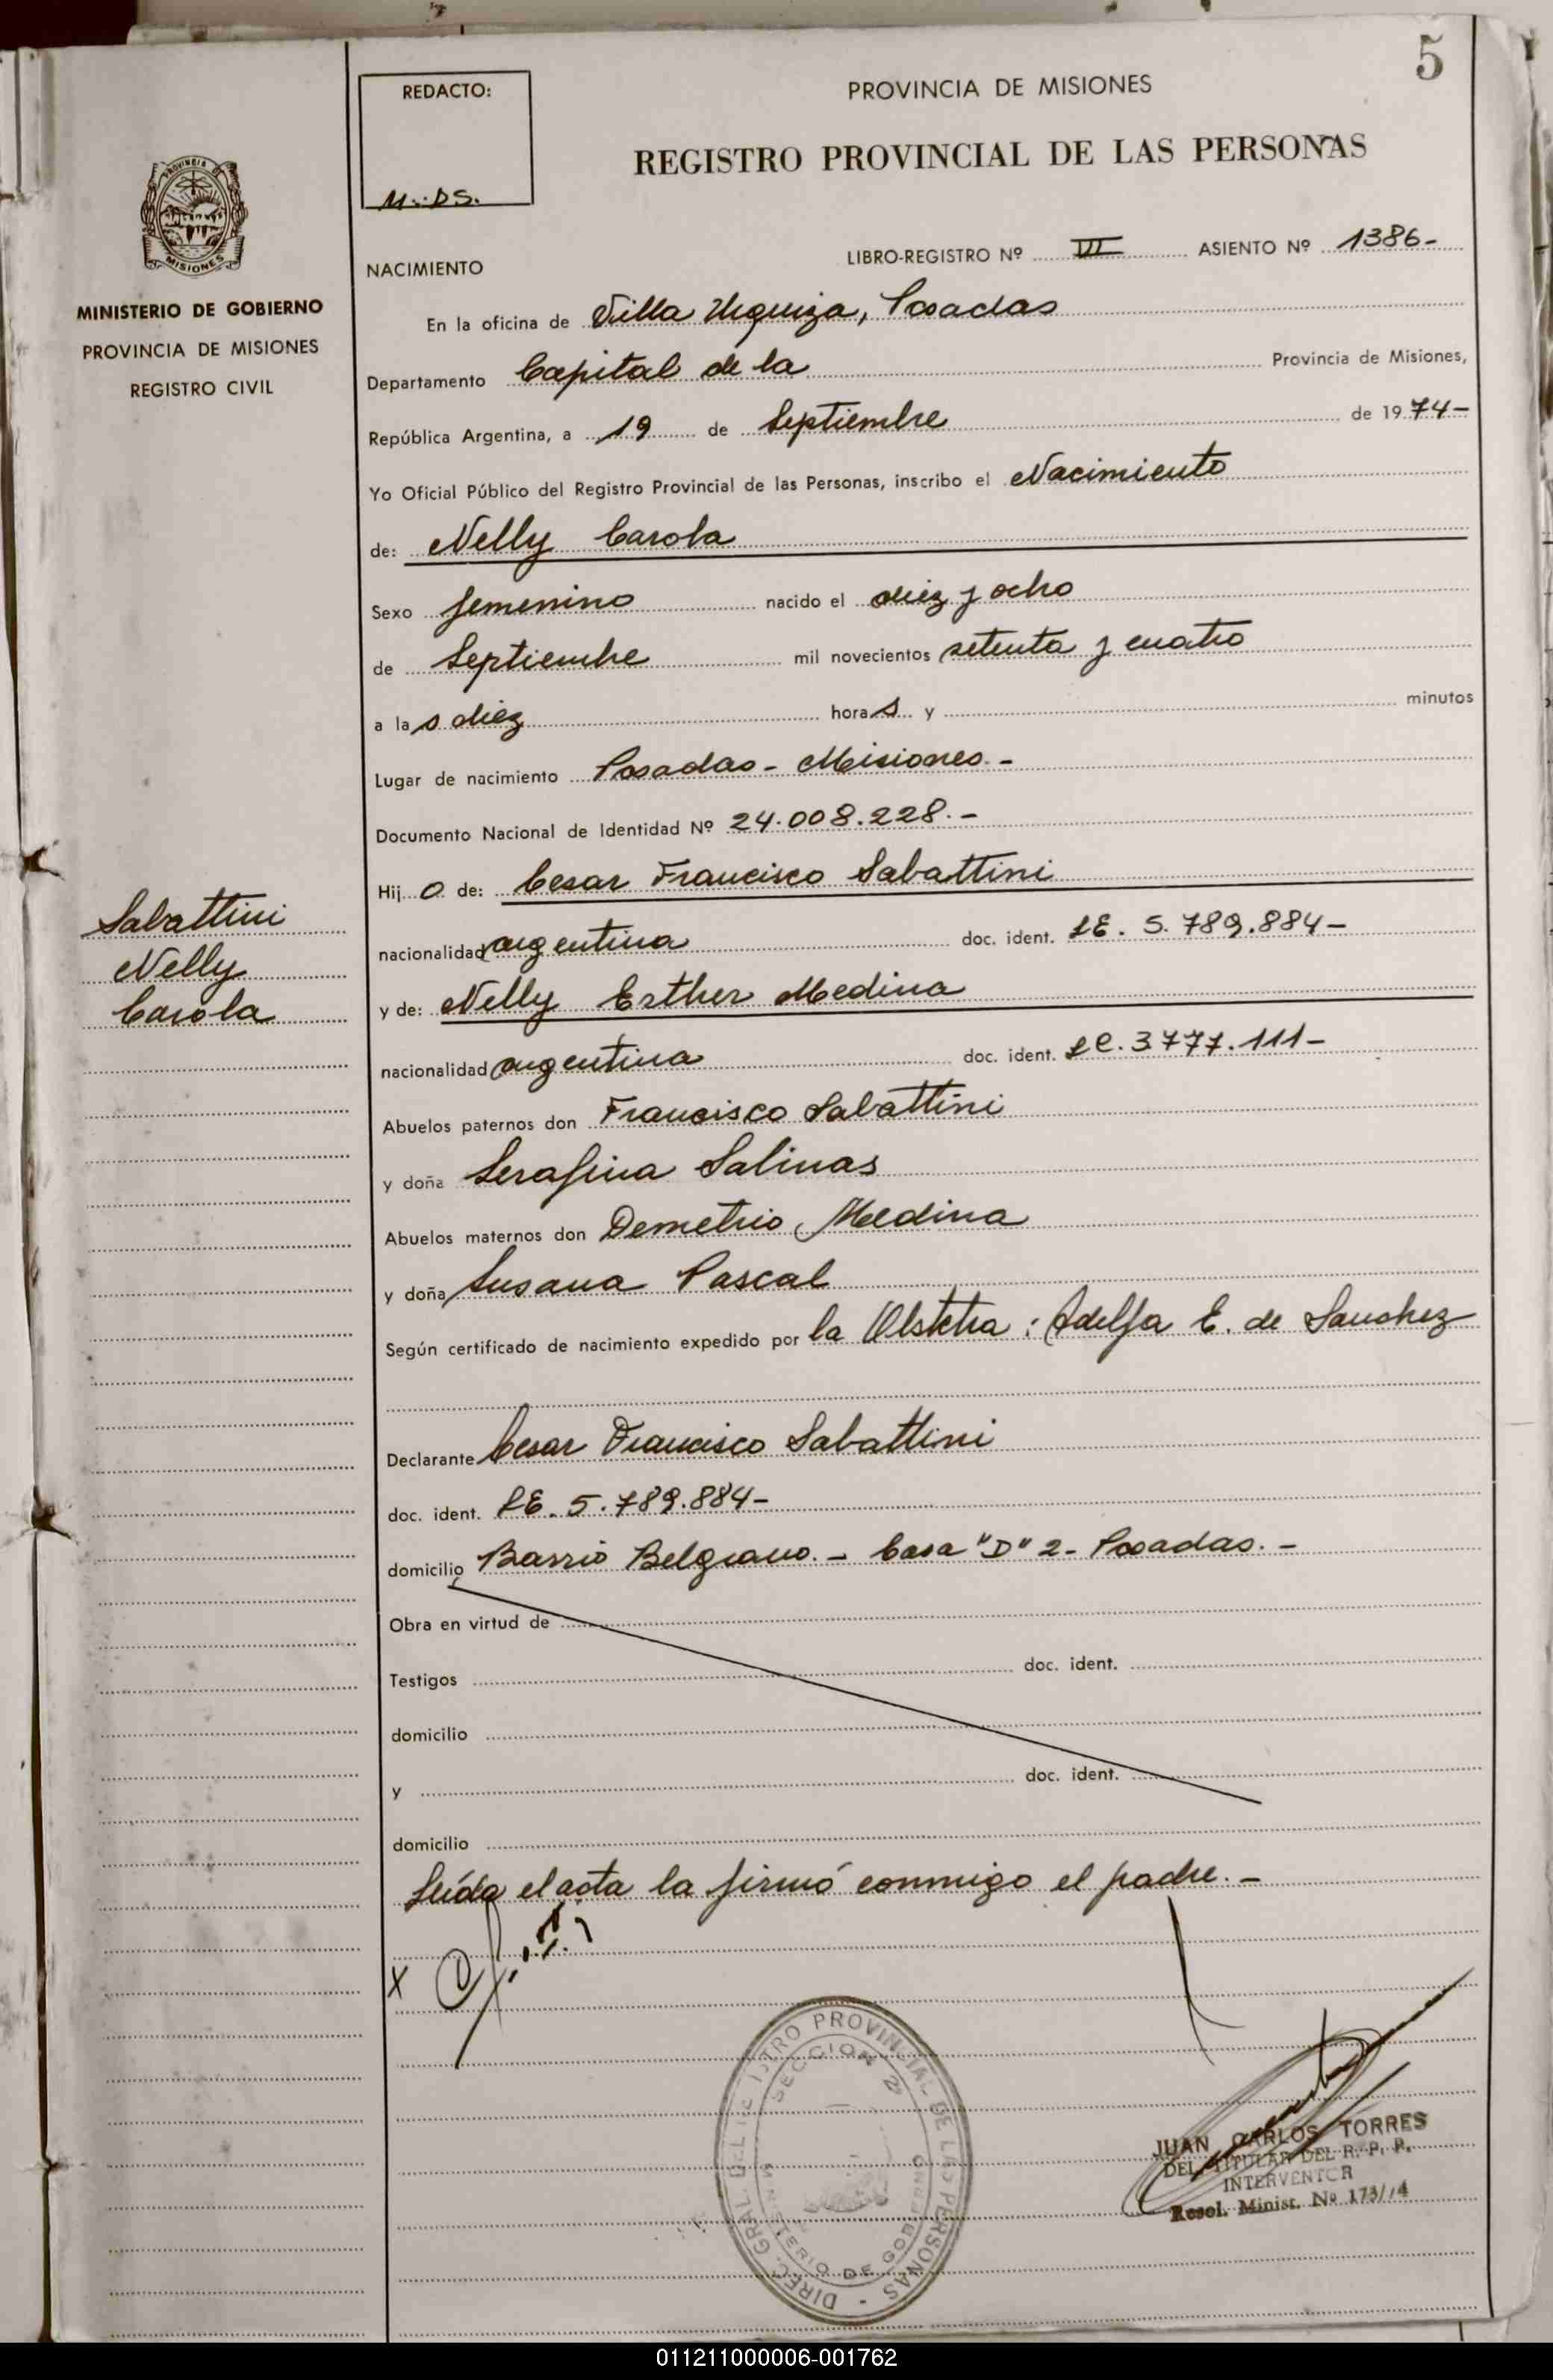 5
REDACTO:
M.DS.
PROVINCIA DE MISIONES
REGISTRO PROVINCIAL DE LAS PERSONAS
PROVINCIA
MISIONES
MINISTERIO DE GOBIERNO
PROVINCIA DE MISIONES
REGISTRO CIVIL
NACIMIENTO
LIBRO-REGISTRO Nº III ASIENTO Nº 1386-
En la oficina de Villa Urquiza, Posadas
Departamento Capital de la Provincia de Misiones,
República Argentina, a 19 de Septiembre de 1974-
Yo Oficial Público del Registro Provincial de las Personas, inscribo el Nacimiento
de: Nelly Carola
Sexo femenino nacido el diez y ocho
de Septiembre mil novecientos setenta y cuatro
a las diez horas y minutos
Lugar de nacimiento Posadas - Misiones.-
Documento Nacional de Identidad Nº 24.008.228.-
Hijo de: Cesar Francisco Sabattini
nacionalidad argentina doc. ident. LE. 5.789.884-
y de: Nelly Esther Medina
nacionalidad argentina doc. ident. LC. 3777.111-
Abuelos paternos don Francisco Sabattini
y doña Serafina Salinas
Abuelos maternos don Demetrio Medina
y doña Susana Pascal
Según certificado de nacimiento expedido por la Obstetra: Adelfa E. de Sanchez
Declarante Cesar Francisco Sabattini
doc. ident. LE. 5.789.884-
domicilio Barrio Belgrano.- Casa "D" 2- Posadas.-
Obra en virtud de
Testigos doc. ident.
domicilio
y doc. ident.
domicilio
Leída el acta la firmó conmigo el padre.-
X
Sabattini
Nelly
Carola
DIREC. GRAL. DEL REGISTRO PROVINCIAL DE LAS PERSONAS -
SECCION 2ª
MINISTERIO DE GOBIERNO
JUAN CARLOS TORRES
DEL. TITULAR DEL R. P. P.
INTERVENTOR
Resol. Minist. Nº 173/74
011211000006-001762